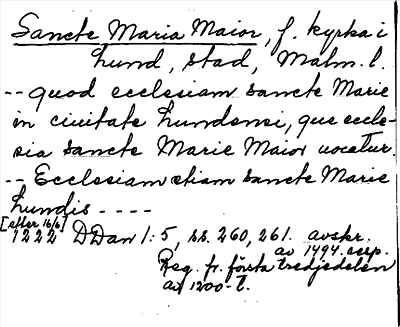 Sancte Maria Maior, f. kyrka i
Lund, stad, Malm. l.
-- quod ecclesiam sancte Marie
in ciuitate Lundensi, que eccle-
sia sancte Marie Maior uocetur.
-- Ecclesiam etiam sancte Marie
Lundis ----
[efter 16/6]
1222 DDan 1:5, ss. 260, 261. avskr.
av 1494. esp.
Reg. fr. första tredjedelen
av 1200-t.